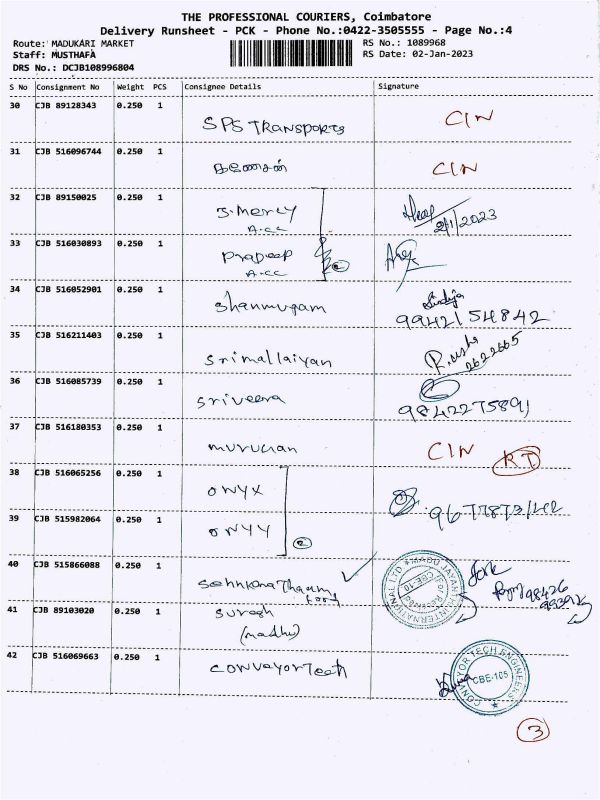 THE PROFESSIONAL COURIERS, Coimbatore
Delivery Runsheet - PCK - Phone No.:0422-3505555 - Page No.:4
Route: MADUKARI MARKET RS No.: 1089968
Staff: MUSTHAFA RS Date: 02-Jan-2023
DRS No.: DCJB108996804
S No Consignment No Weight PCS Consignee Details Signature
30 CJB 89128343 0.250 1
SPS TRANSPORTS CIN
31 CJB 516096744 0.250 1
கணேசன் CIN
32 CJB 89150025 0.250 1
J.Mercy
A.cc 2/1/2023
33 CJB 516030893 0.250 1
Pradeep
A.cc 2
34 CJB 516052901 0.250 1
Shanmugam 9942154842
35 CJB 516211403 0.250 1
Srimallaiyan 2622665
36 CJB 516085739 0.250 1
Sriveera 9842275891
37 CJB 516180353 0.250 1
murugan CIN RT
38 CJB 516065256 0.250 1
ONYX
39 CJB 515982064 0.250 1
ONYY 2
40 CJB 515866088 0.250 1
41 CJB 89103020 0.250 1
Suresh
(madhu)
42 CJB 516069663 0.250 1
ConveyorTech
CONVEYOR TECH ENGINEERS
CBE-105
3